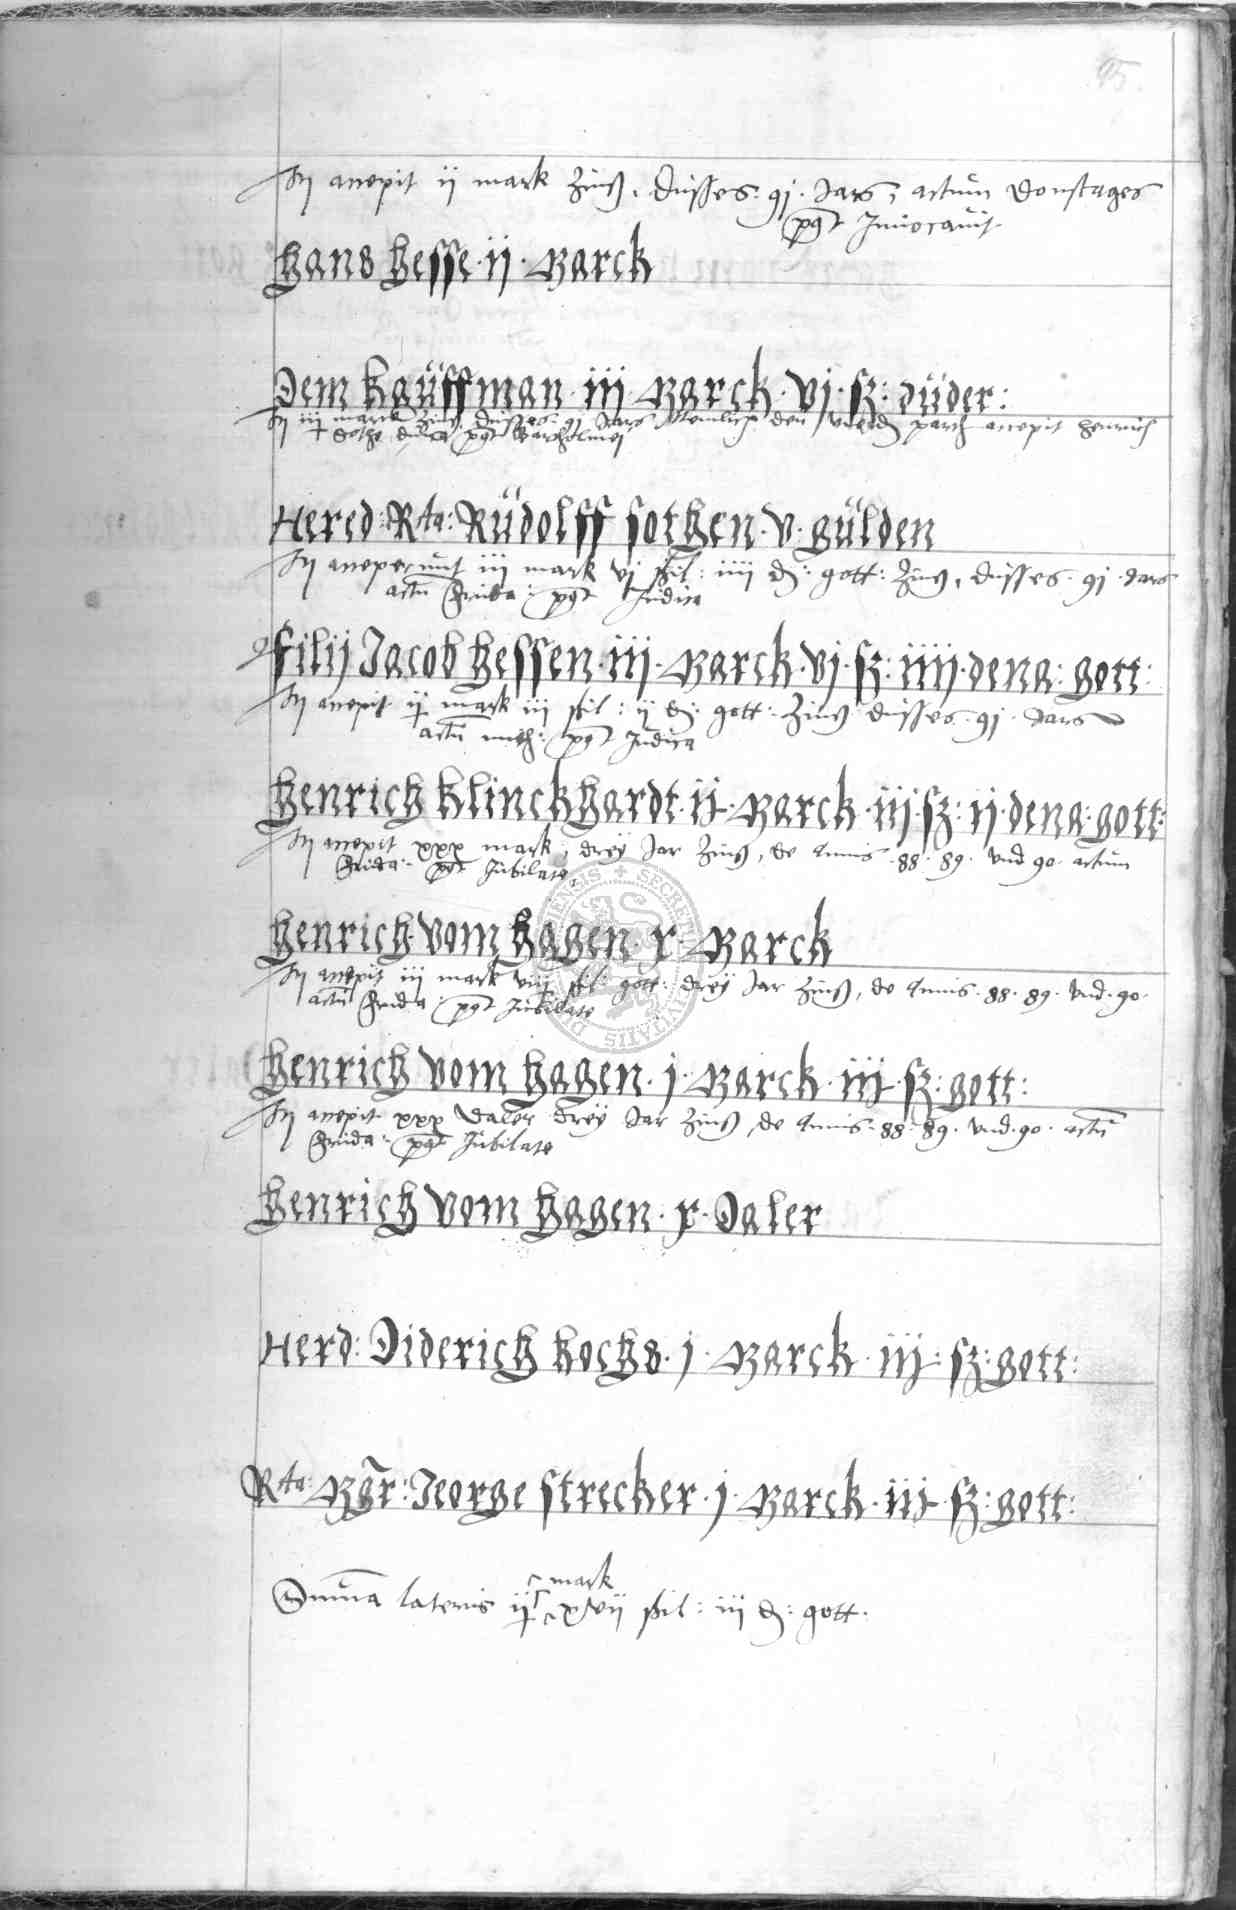 95.
accepit ij mark Zinß, dusses. 91. Jars, actum Donstages
post Inuocauit
Hans Hesse · ij · Marck
Dem Kauffman · iij · Marck · vj · ß: düder:
iij marck Zinß dusses 91 Jars Nemlich den parch accepit Henrich
post Bartholmei
Hered: Rta: Rüdolff Sothen · v · gülden
acceperunt iij mark vj ßil: iiij d: gott: Zinß, dusses · 91 · Jars
actum frida: post Judica
filij Jacob Hessen · iij · Marck · vj · ß: iiij · dena: gott:
accepit ij mark iij ßil: ij d: gott: Zinß dusses · 91 · Jars
actum post Judica
Henrich Klinckhardt · ij · Marck · iij · ß: ij · dena: gott:
accepit xxx mark, drey Jar Zinß, de Annis · 88 · 89 · vnd 90 · actum
frida: post Jubilate
Henrich vom Hagen · x · Marck
accepit iij mark viiij ßil: gott: drey Jar Zinß, de Annis · 88 · 89 · vnd · 90 ·
actum frida: post Jubilate
Henrich vom Hagen · j · Marck · iij · ß: gott:
accepit xxx Daler drey Jar Zinß, de Annis · 88 · 89 · vnd · 90 · actum
frida: post Jubilate
Henrich vom Hagen · x · Daler
Herd: Diderich Kochs · j · Marck · iij · ß: gott:
Rta: Mgr: Jeorge Strecker · j · Marck · iij · ß: gott:
mark
Summa lateris xxvij ßil: iij d: gott:
SECRETUM CIVITATIS